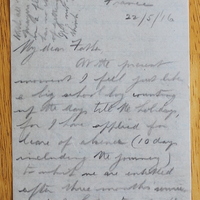 France
22/5/16
My dear Father
At the present
moment I feel just like
a big school boy counting
up the days till the holidays,
for I have applied for
leave of absence (10 days
including the journey)
to which we are entitled
after three months service